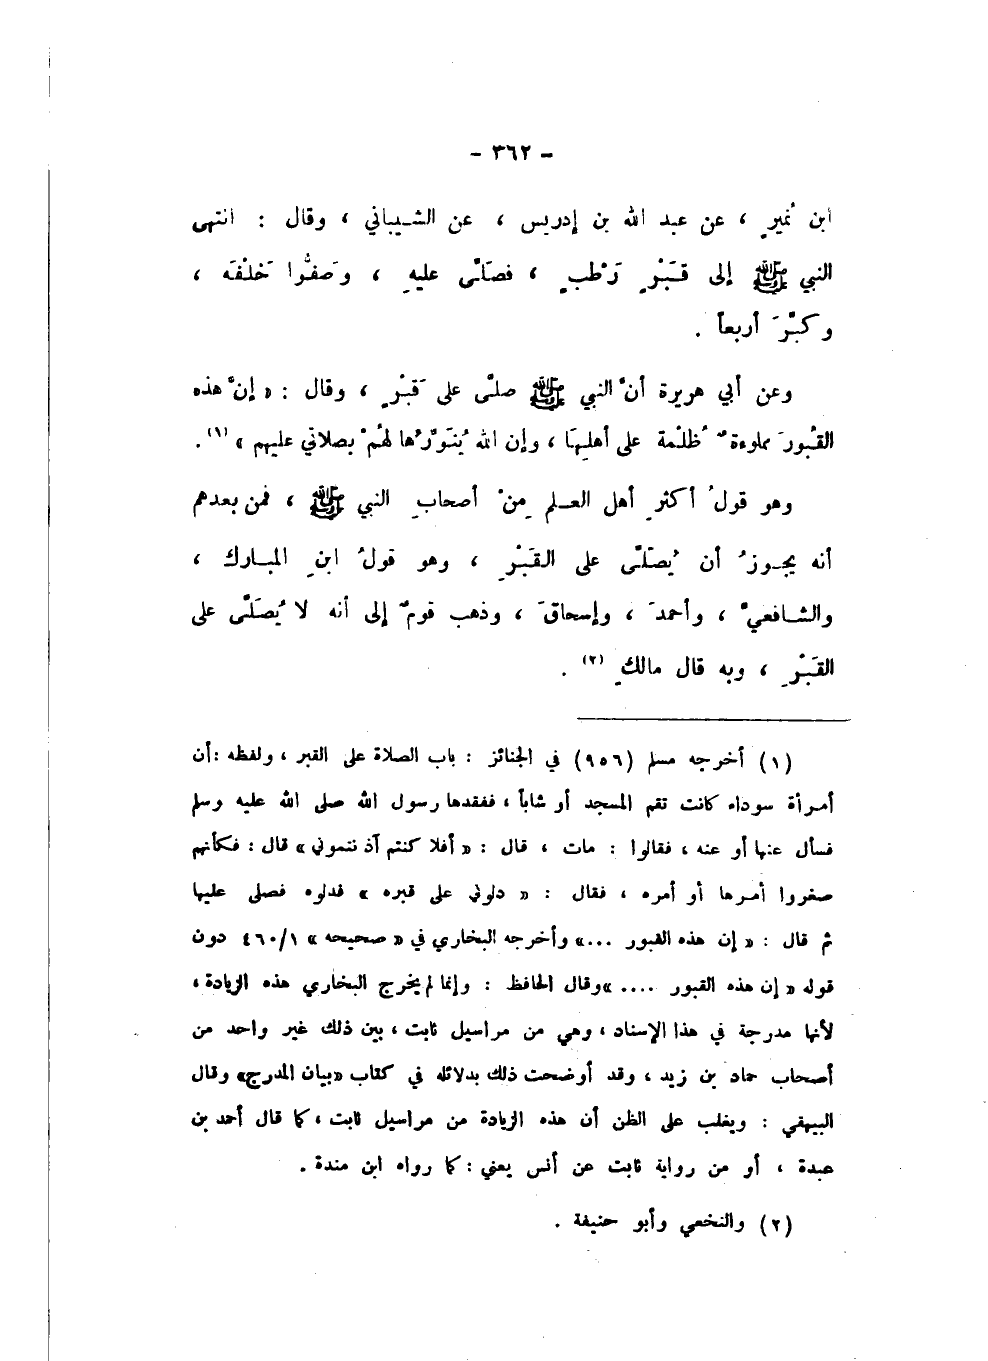 - ٣٦٢ -
ابن نُمَيرٍ ، عن عبد الله بن إدريس ، عن الشيباني ، وقال : انتهى
النبي ﷺ إلى قَبْرٍ رَطْبٍ ، فصَلَّى عليهِ ، وصَفُّوا خَلْفَه ،
وكبَّرَ أربعاً .
وعن أبي هريرة أنَّ النبي ﷺ صلَّى على قَبْرٍ ، وقال : « إنَّ هذه
القُبورَ مملوءةٌ ظُلْمة على أهلِها ، وإن الله يُنَوِّرُها لهُمْ بصلاتي عليهم » (١) .
وهو قولُ أكثرِ أهل العلم مِنْ أصحابِ النبي ﷺ ، فمن بعدهم
أنه يجوزُ أن يُصَلَّى على القَبْرِ ، وهو قولُ ابنِ المبارك ،
والشافعيِّ ، وأحمدَ ، وإسحاقَ ، وذهب قومٌ إلى أنه لا يُصَلَّى على
القَبْرِ ، وبه قال مالكٍ (٢) .
(١) أخرجه مسلم (٩٥٦) في الجنائز : باب الصلاة على القبر ، ولفظه : أن
أمرأة سوداء كانت تقم المسجد أو شاباً ، ففقدها رسول الله صلى الله عليه وسلم
فسأل عنها أو عنه ، فقالوا : مات ، قال : « أفلا كنتم آذنتموني » قال : فكأنهم
صغروا أمرها أو أمره ، فقال : « دلوني على قبره » فدلوه فصلى عليها
ثم قال : « إن هذه القبور ...» وأخرجه البخاري في « صحيحه » ٤٦٠/١ دون
قوله « إن هذه القبور .... »وقال الحافظ : وإنما لم يخرج البخاري هذه الزيادة ،
لأنها مدرجة في هذا الإسناد ، وهي من مراسيل ثابت ، بين ذلك غير واحد من
أصحاب حماد بن زيد ، وقد أوضحت ذلك بدلائله في كتاب «بيان المدرج» وقال
البيهقي : ويغلب على الظن أن هذه الزيادة من مراسيل ثابت ، كما قال أحمد بن
عبدة ، أو من رواية ثابت عن أنس يعني : كما رواه ابن مندة .
(٢) والنخعي وأبو حنيفة .